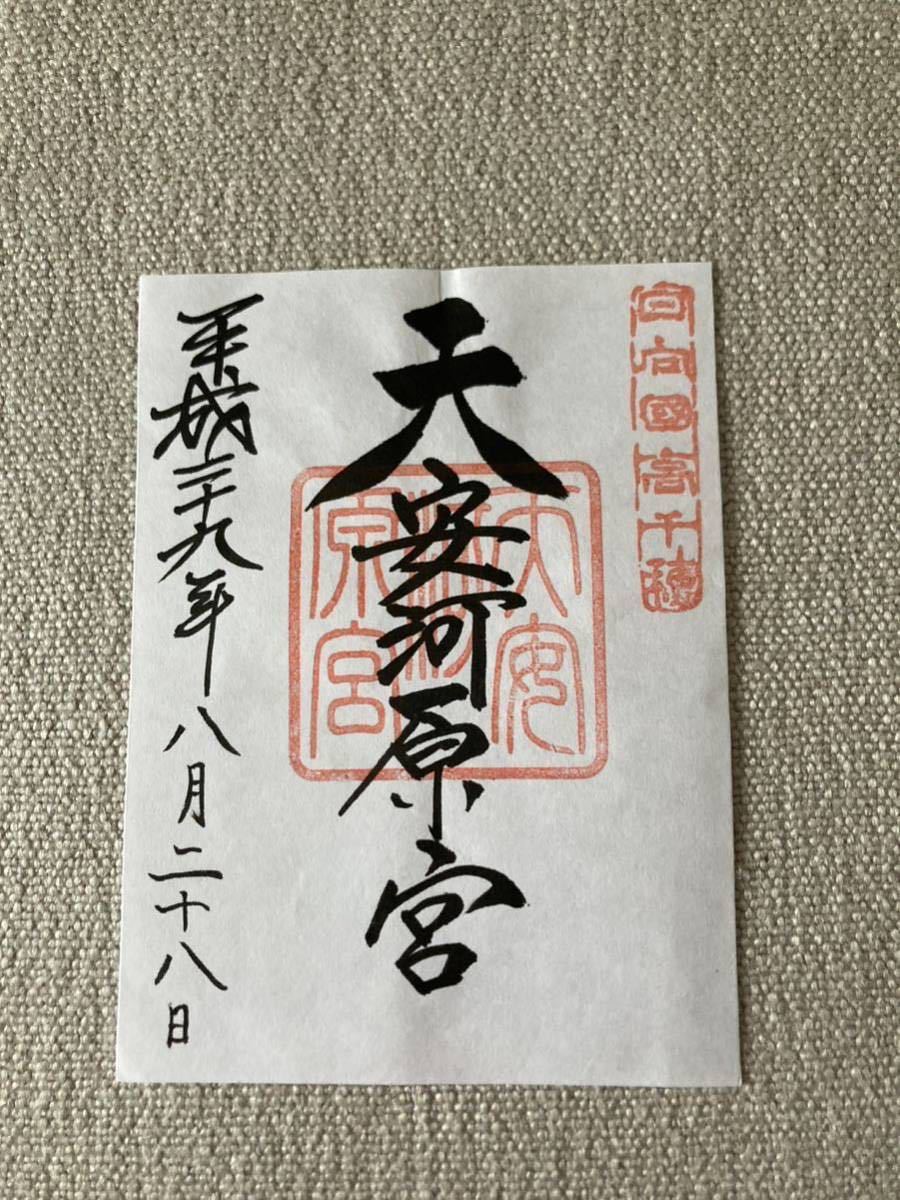 日向國高千穂
天安河原宮
天安
河原宮
平成二十九年八月二十八日